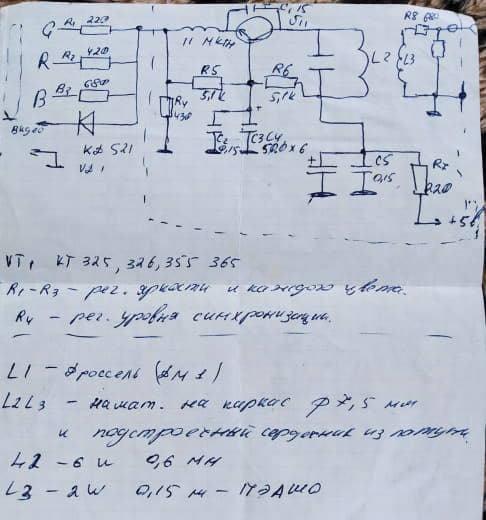 G R1 220
R R2 420
B R3 680
Видео
КД 521
VD1
11 мкГн
C1 15
VT1
R5
5,1к
R6
5,1к
R4
430
C2
0,15
C3 C4
500,0 x 6
+
+
C5
0,15
R7
220
+5в
L2
L3
R8 680
VT1 КТ 325, 326, 355 365
R1-R3 – рег. яркости и каждого цвета.
R4 – рег. уровня синхронизации.
L1 – Дроссель (ДМ1)
L2L3 – намат. на каркас φ7,5 мм
и подстроечный сердечник из латуни.
L2 – 6W 0,6 мм
L3 – 2W 0,15 м – ПЭЛШО